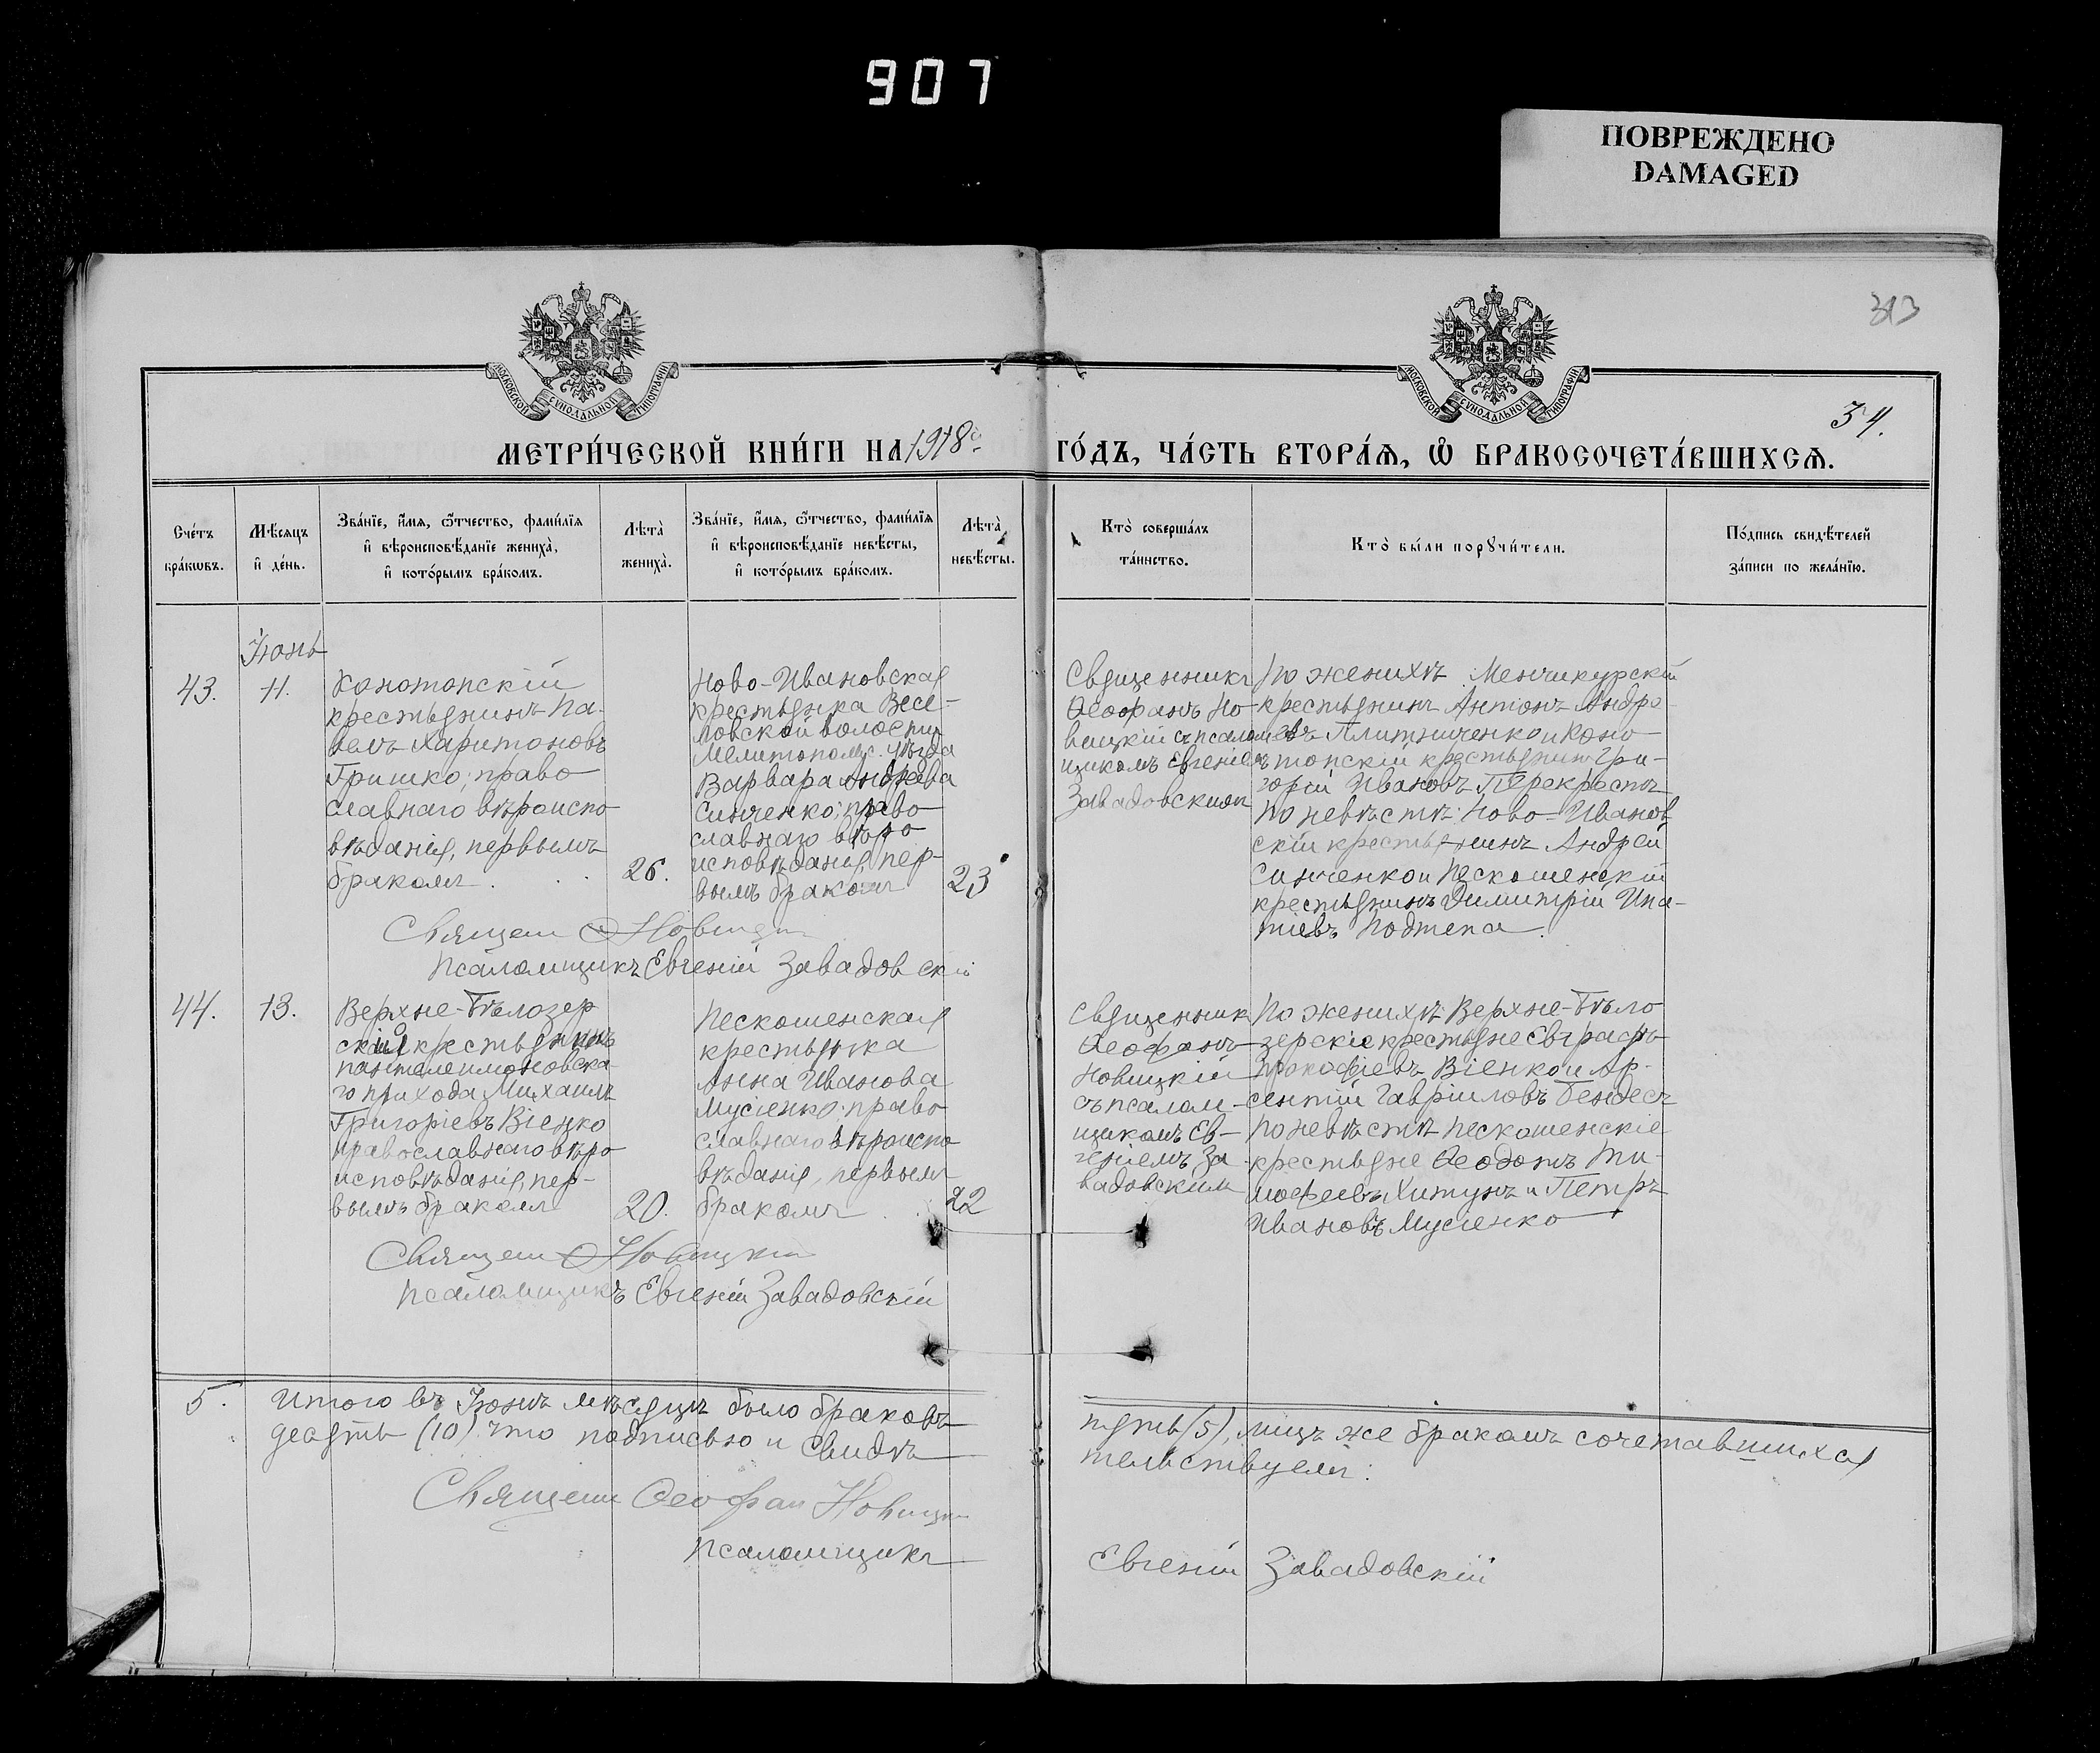 907
ПОВРЕЖДЕНО
DAMAGED
313
МОСКОВСКОЙ СѴНОДАЛЬНОЙ ТИПОГРАФІИ
МОСКОВСКОЙ СѴНОДАЛЬНОЙ ТИПОГРАФІИ
34.
МЕТРИ́ЧЕСКОЙ КНИ́ГИ НА 1918 ГО́ДЪ, ЧА́СТЬ ВТОРА́Ѧ, Ѽ БРАКОСОЧЕТА́ВШИХСѦ.
Сче́тъ
бра́кѡвъ.
Мѣ́сяцъ
и҆ де́нь.
Зва́нїе, и҆́мѧ, ѻ҆́тчество, фами́лїѧ
и҆ вѣроисповѣ́данїе жениха̀,
и҆ кото́рымъ бра́комъ.
Лѣта̀
жениха̀.
Зва́нїе, и҆́мѧ, ѻ҆́тчество, фами́лїѧ
и҆ вѣроисповѣ́данїе невѣ́сты,
и҆ кото́рымъ бра́комъ.
Лѣта̀
невѣ́сты.
Кто̀ соверша́лъ
та́инство.
Кто̀ бы́ли порꙋчи́тели.
По́дпись свидѣ́телей
за́писи по жела́нїю.
Іюнь
43.
11.
Конотопскій
крестьянинъ Па-
велъ Харитоновъ
Гришко; право
славнаго вѣроиспо
вѣданія, первымъ
бракомъ.
26.
Ново-Ивановская
крестьянка Весе-
ловской волости
Мелитопольс. уѣзда
Варвара Андреева
Синченко; право
славнаго вѣро
исповѣданія, пер-
вымъ бракомъ
23
Священникъ
Ѳеофанъ Но-
вицкій съ псалом
щикомъ Евгеніемъ
Завадовскимъ
По женихѣ Менчикурскій
крестьянинъ Антонъ Андре
евъ Плитниченко и Коно
топскій крестьянинъ Гри-
горій Ивановъ Перекрестъ
по невѣстѣ: Ново-Иванов
скій крестьянинъ Андрей
Синченко и Пескошенскій
крестьянинъ Димитрій Ипа-
тіевъ Подтепа.
Священ Ѳ Новицкі
Псаломщикъ Евгеній Завадовскій
44.
13.
Верхне-Бѣлозер
скій крестьянинъ
пантелеимоновска
го прихода Михаилъ
Григоріевъ Віенко
православнаго вѣро
исповѣданія, пер-
вымъ бракомъ
20.
Пескошенская
крестьянка
Анна Иванова
Мусіенко; право
славнаго вѣроиспо
вѣданія, первымъ
бракомъ
22
Священник
Ѳеофанъ
Новицкій
съ псалом-
щикомъ Ев-
геніемъ За
вадовским
По женихѣ Верхне-Бѣло
зерскіе крестьяне Евграфъ
Прокофіевъ Віенко и Ар-
сентій Гавріиловъ Бендесъ
По невѣстѣ Пескошенскіе
крестьяне Ѳеодотъ Ти-
мофеевъ Хитунъ и Петръ
Ивановъ Мусіенко
Священ Ѳ Новицкій
Псаломщикъ Евгеній Завадовскій
5.
Итого въ Іюнѣ мѣсяцѣ было браковъ пять (5), лицъ же бракомъ сочетавшихся
десять (10) что подписью и свидѣтельствуемъ:
Священ Ѳеофан Новицкі
Псаломщикъ Евгеній Завадовскій